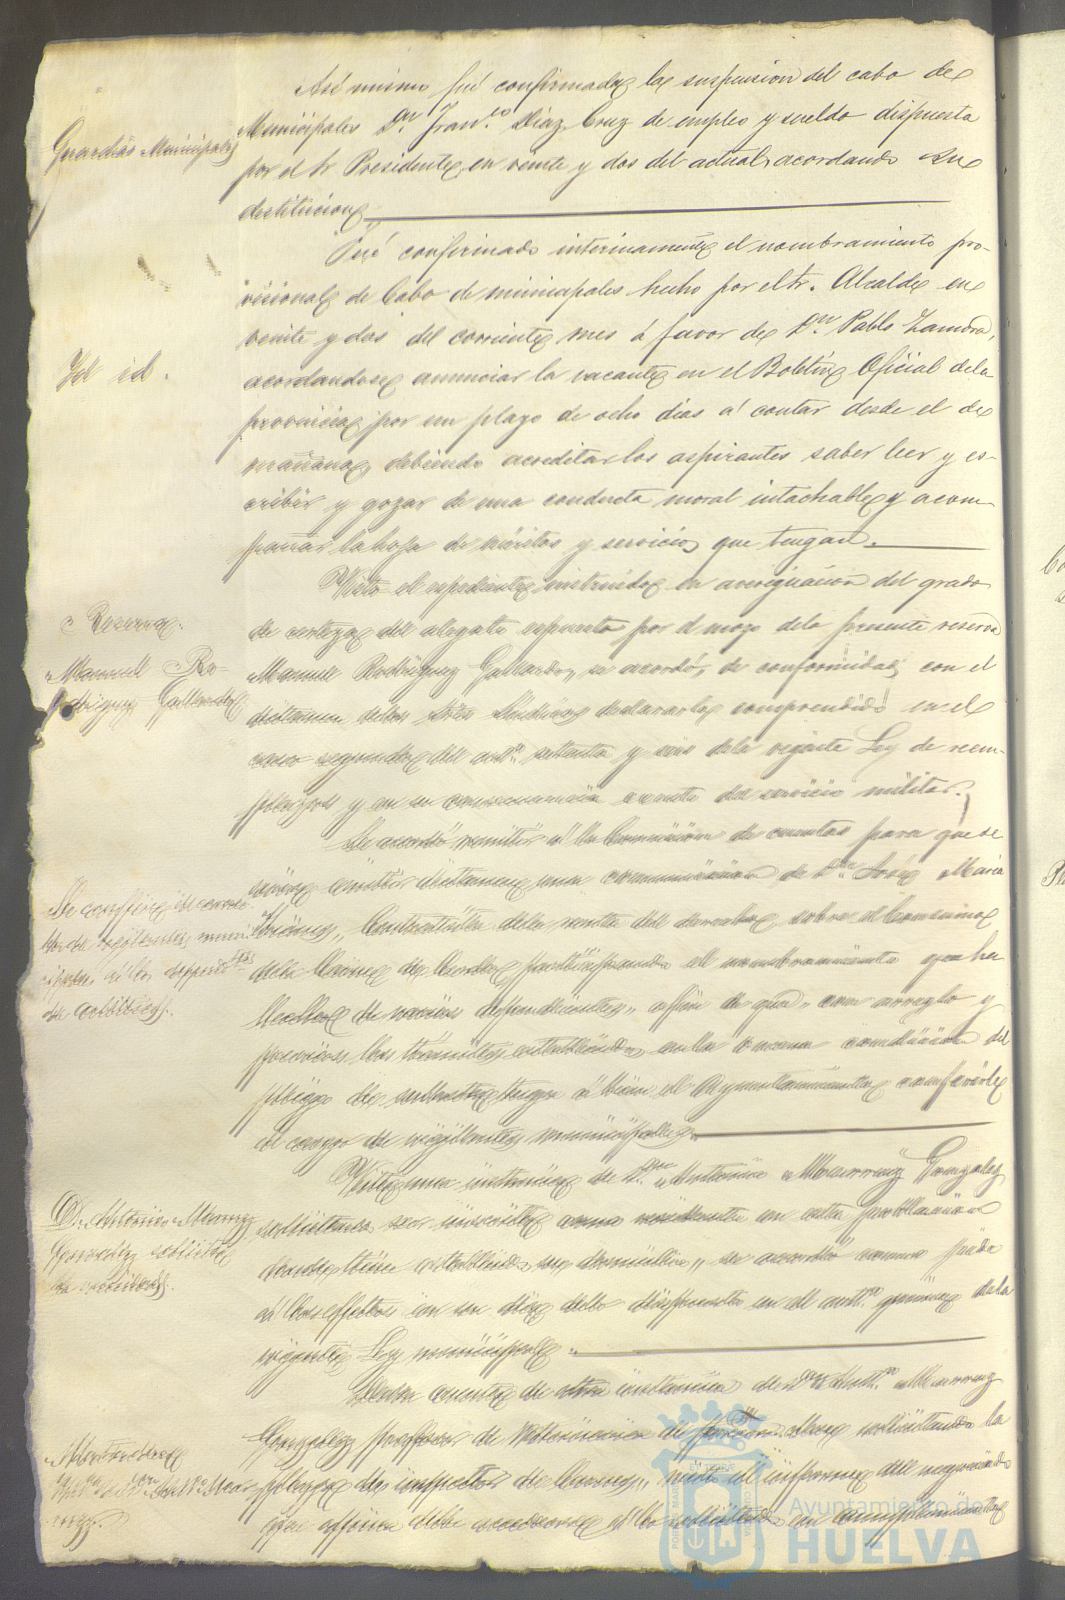 Así mismo fué confirmada la suspension del cabo de
Guardias Municipales
Municipales Dn. Franco. Diaz Cruz de empleo y sueldo dispuesta
por el Sr Presidente en veinte y dos del actual, acordando su
destitucion
Fué confirmado interinamente el nombramiento pro-
visional de Cabo de municipales hecho por el Sr. Alcalde en
veinte y dos del corriente mes á favor de Dn. Pablo Zamora,
Id id.
acordandose anunciar la vacante en el Boletin Oficial de la
provincia por un plazo de ocho dias á contar desde el de
mañana, debiendo acreditar los aspirantes saber leer y es-
cribir y gozar de una conducta moral intachable y acom-
pañar la hoja de méritos y servicios que tengan.
Visto el espediente instruido en averiguacion del grado
Reserva.
de certeza del alegato espuesto por el mozo de la presente reserva
Manuel Ro-
driguez Gallardo
Manuel Rodriguez Gallardo, se acordó, de conformidad con el
dictamen de los Sres Sindicos declararle comprendido en el
caso segundo del artº. setenta y seis de la vigente Ley de reem-
plazos y en su consecuencia exento del servicio militar.
Se acordó remitir á la Comision de cuentas para que se
sirva emitir dictamen una comunicacion de Dn. José Maria
Se confiere el car
de vigilantes muni
cipales á los
de arbitrios.
Contratista de la renta del derecho sobre el Consumo
de la Carne de Cerdo participando el nombramiento que ha
hecho de varios dependientes, á fin de que, con arreglo y
previos los trámites establecidos en la condicion del
pliego de subasta tenga á bien el Ayuntamiento conferirle
el cargo de vigilantes municipales.
Vista una instancia de Dn. Antonio Gonzalez
D. Antonio
Gonzalez solicita
la vecindad.
solicitando ser inscrito como residente en esta poblacion
donde tiene establecido su domicilio, se acordó
á los efectos de lo dispuesto en el artº. de la
vigente Ley municipal.
Dada cuenta de otra instancia de Dn. Antº.
Gonzalez profesor de Veterinaria solicitando la
plaza de inspector de Carnes, visto el informe del negociado
que opina debe accederse á lo solicitado en cumplimiento
Ayuntamiento de
HUELVA